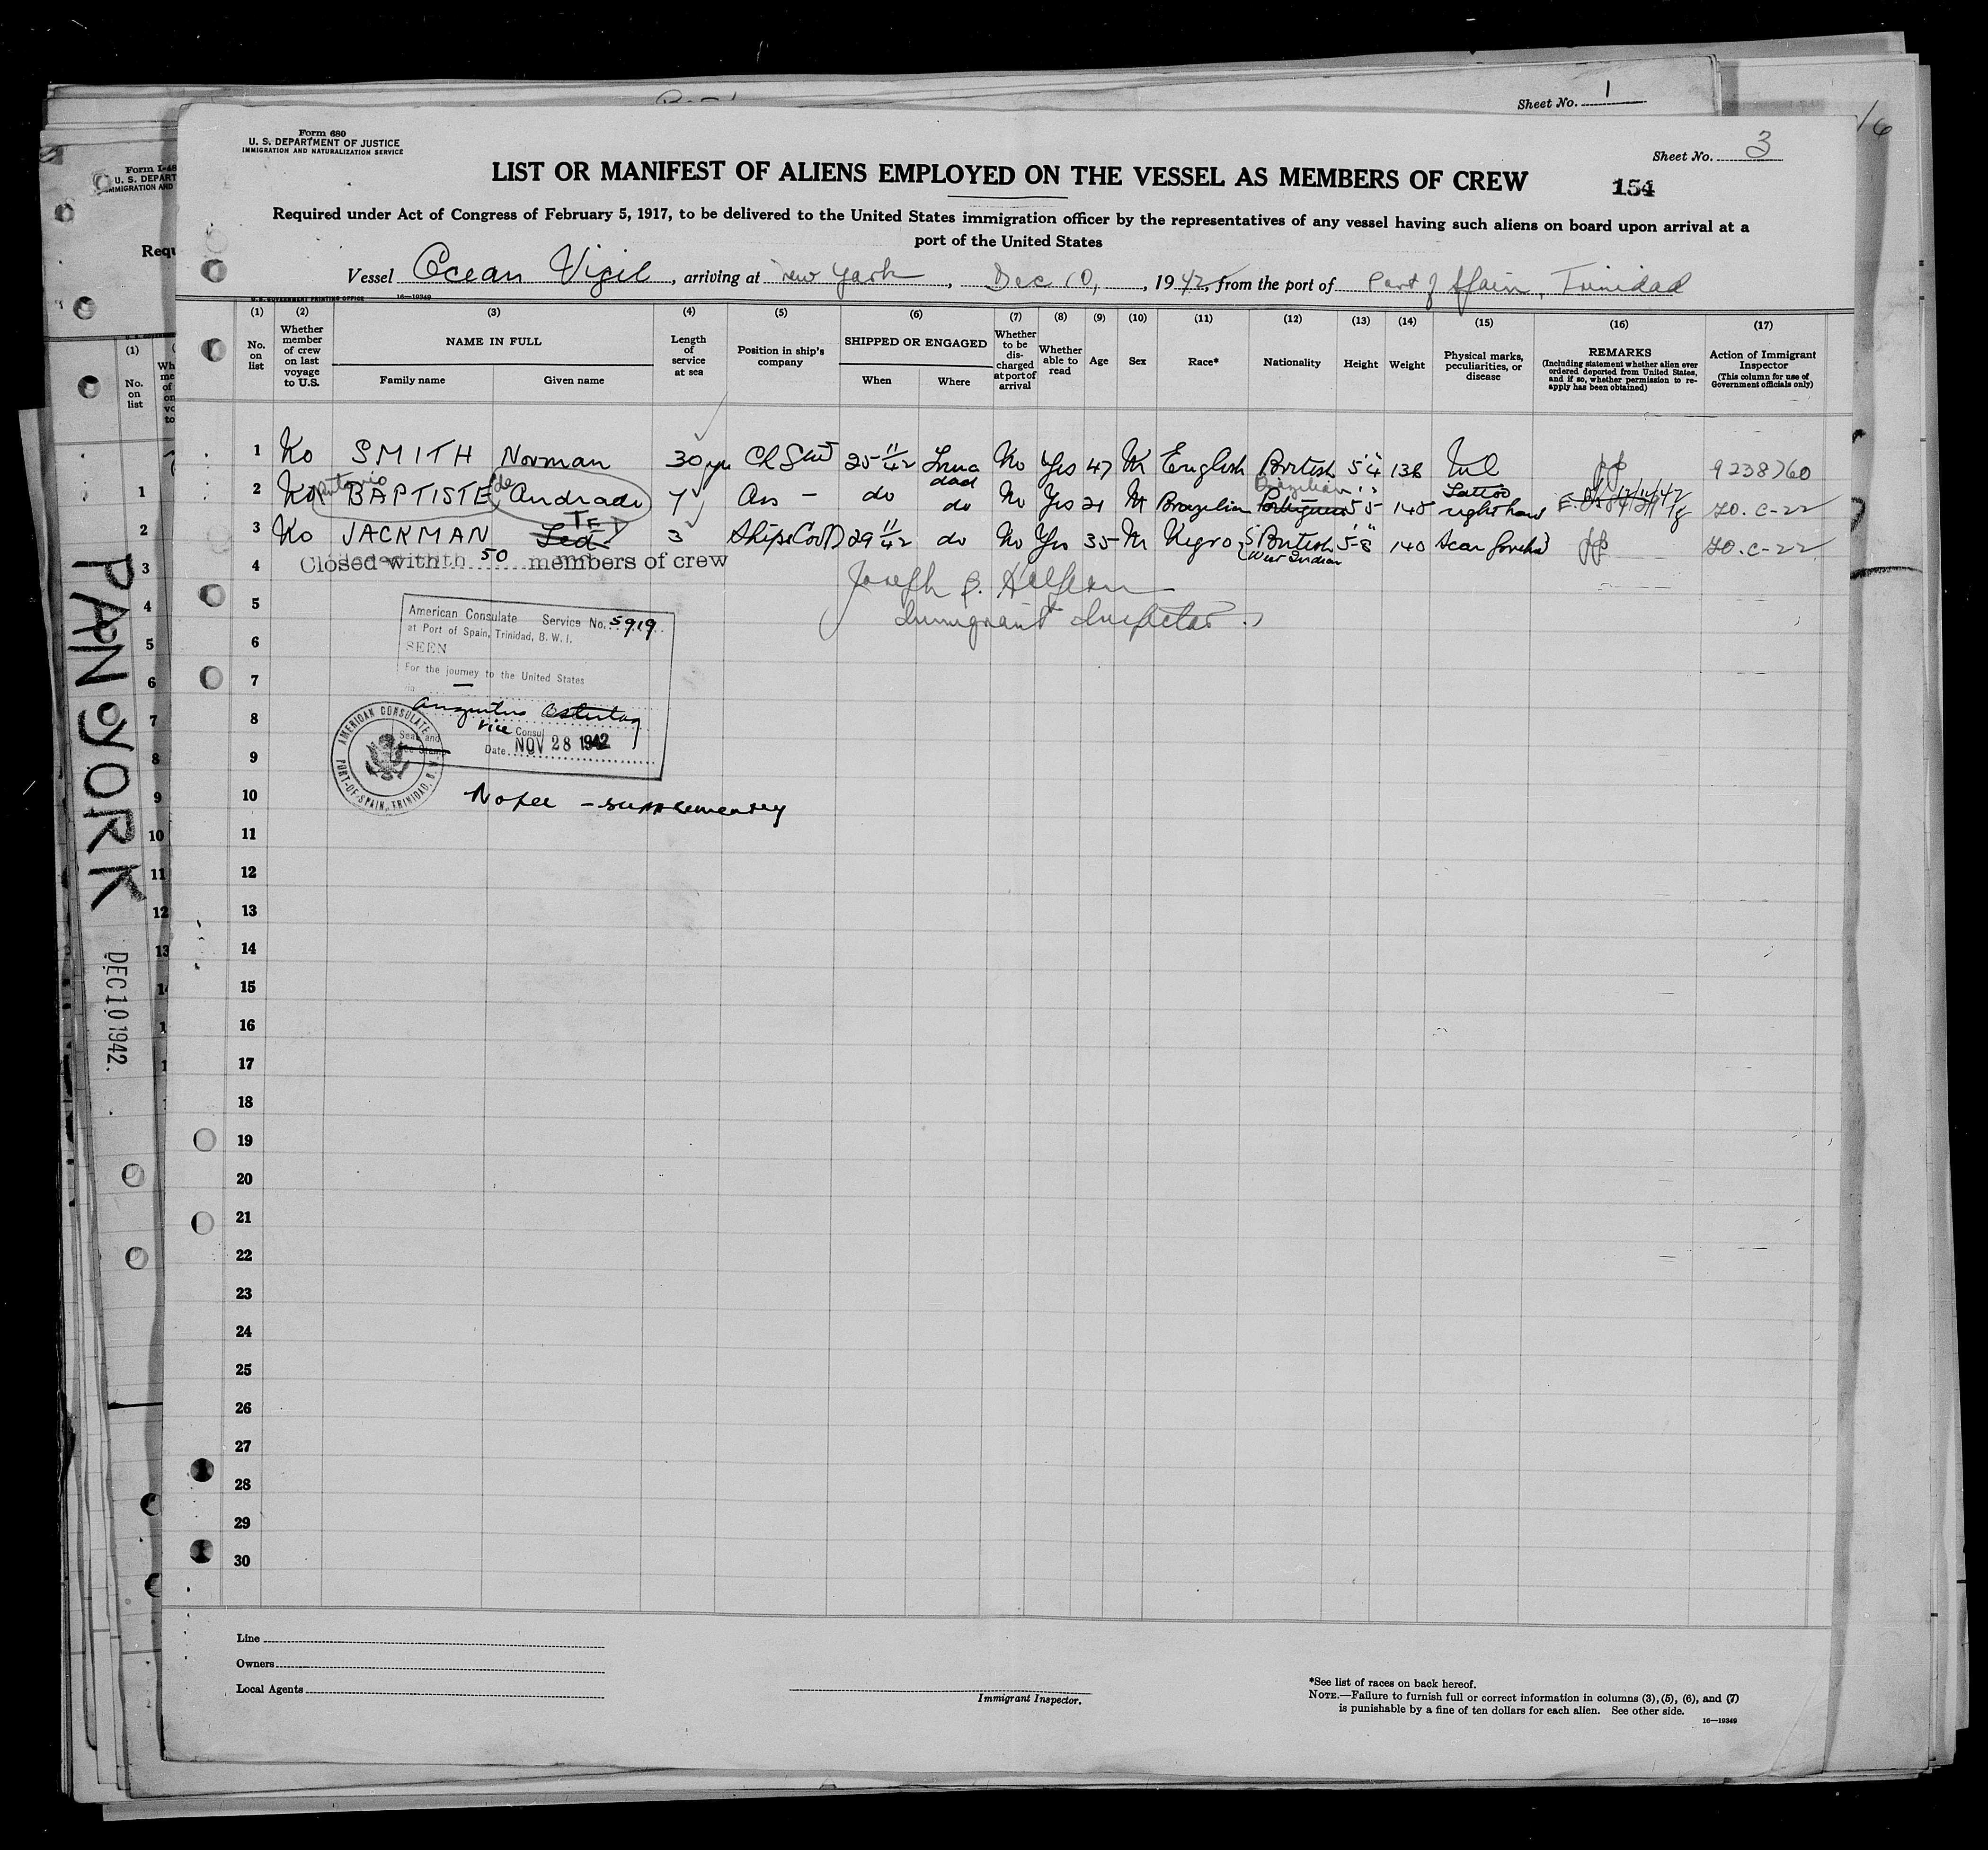 Sheet No. 1
16
Form 680
U. S. DEPARTMENT OF JUSTICE
IMMIGRATION AND NATURALIZATION SERVICE
Sheet No. 3
LIST OR MANIFEST OF ALIENS EMPLOYED ON THE VESSEL AS MEMBERS OF CREW
154
Required under Act of Congress of February 5, 1917, to be delivered to the United States immigration officer by the representatives of any vessel having such aliens on board upon arrival at a
port of the United States
Vessel Ocean Vigil, arriving at New York, Dec 10, 1942, from the port of Port of Spain, Trinidad
U. S. GOVERNMENT PRINTING OFFICE 16—19349
(1) (2) (3) (4) (5) (6) (7) (8) (9) (10) (11) (12) (13) (14) (15) (16) (17)
No. on list
Whether member of crew on last voyage to U.S.
NAME IN FULL
Family name Given name
Length of service at sea
Position in ship's company
SHIPPED OR ENGAGED
When Where
Whether to be discharged at port of arrival
Whether able to read
Age
Sex
Race*
Nationality
Height
Weight
Physical marks, peculiarities, or disease
REMARKS
(Including statement whether alien ever ordered deported from United States, and if so, whether permission to reapply has been obtained)
Action of Immigrant Inspector
(This column for use of Government officials only)
1 No SMITH Norman 30 yrs Ch Stwd 25 11/42 Trinidad No Yes 47 M English British 5'4" 138 Nil 9238760
2 No Antonio BAPTISTE de Andrade 7 Ass - do do No Yes 21 M Brazilian Brazilian Portuguese 5'5" 145 Tattoo right hand 70. C-22
3 No JACKMAN Ted TED 3 Ships Cook 29 11/42 do No Yes 35 M Negro British West Indian 5'8" 140 Scar foreh'd 70. C-22
Closed with 50 members of crew
Joseph B. Halpern
Immigrant Inspector
4
5
6
7
8
9
10
11
12
13
14
15
16
17
18
19
20
21
22
23
24
25
26
27
28
29
30
American Consulate Service No. 5919
at Port of Spain, Trinidad, B. W. I.
SEEN
For the journey to the United States
via
Augustus Ostertag
Vice Consul
Seal and
Fee Stamp
Date NOV 28 1942
AMERICAN CONSULATE
PORT-OF-SPAIN, TRINIDAD, B.
No fee - supplementary
Line
Owners
Local Agents
Immigrant Inspector.
*See list of races on back hereof.
NOTE.—Failure to furnish full or correct information in columns (3), (5), (6), and (7)
is punishable by a fine of ten dollars for each alien. See other side.
16—19349
Form I-48
U. S. DEPART
IMMIGRATION AND
Requ
(1)
No. on list
1
2
3
4
5
6
7
8
9
10
11
12
13
PAN YORK
DEC 10 1942.